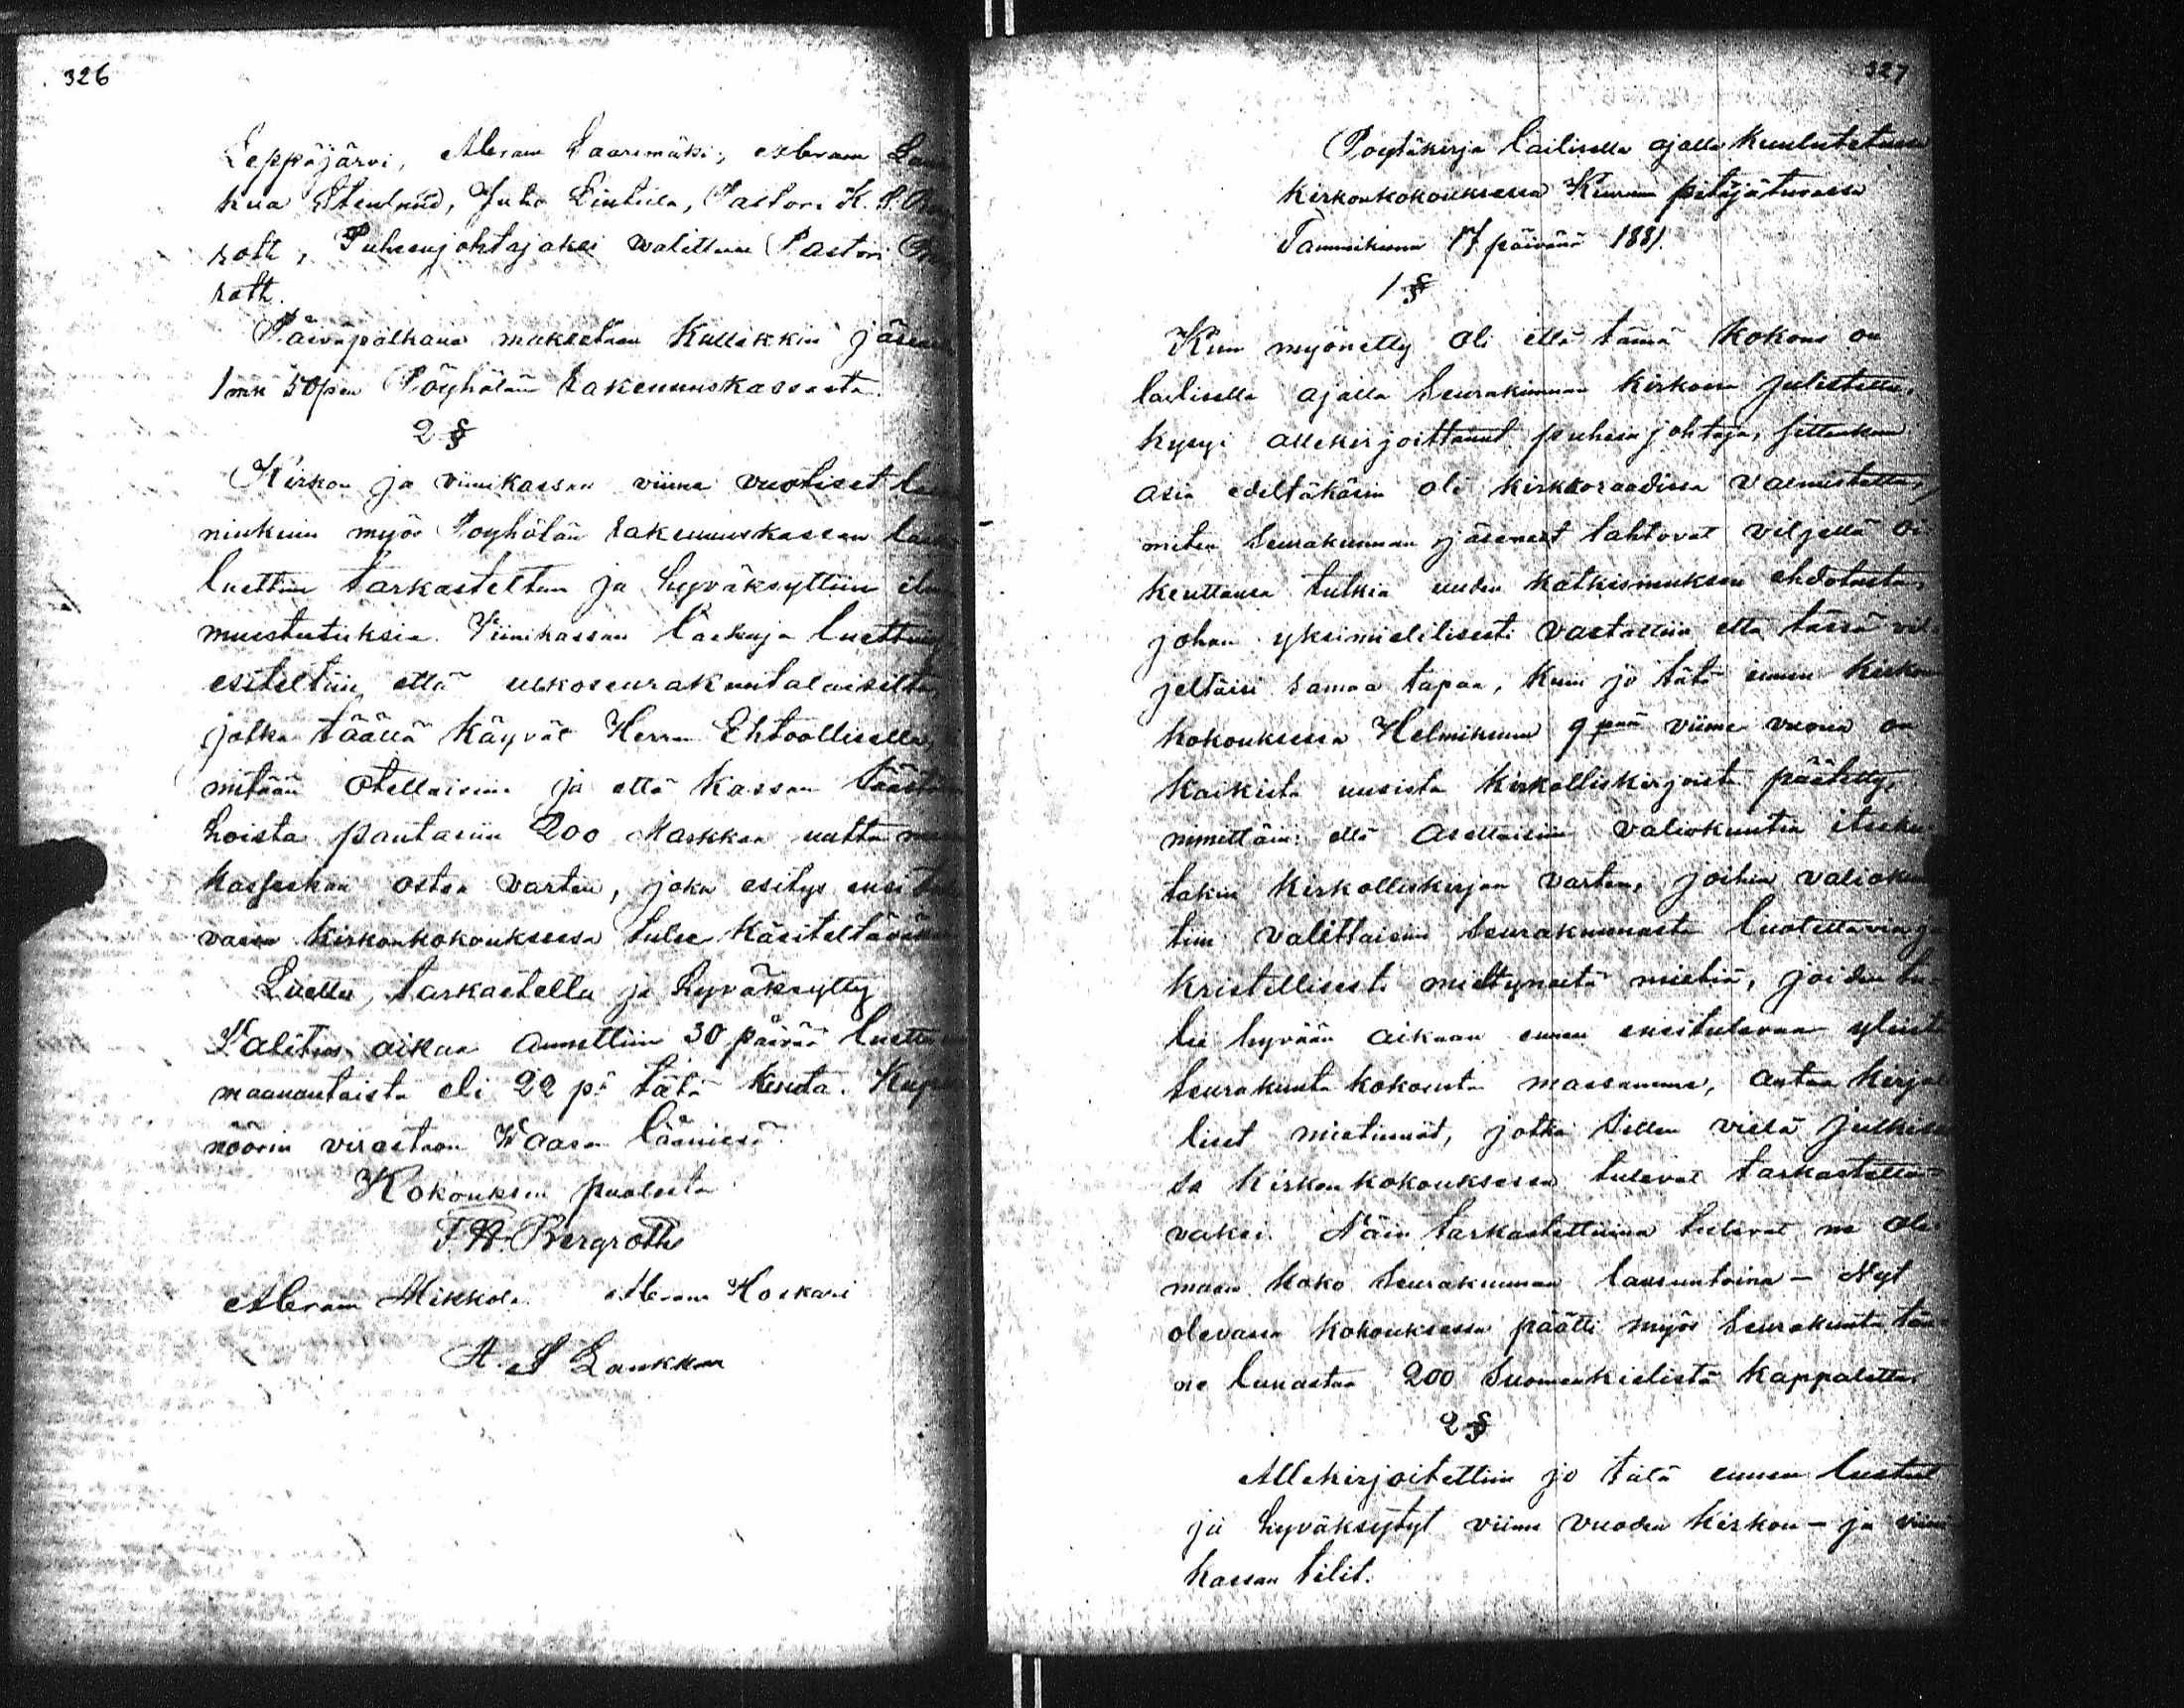 326
Leppäjärvi, Abram Saarimäki, Abram
kua Stenlund, Juho Lintula, Pastori K.
roth, Puheenjohtajaksi walittiin Pastori
roth.
Päiväpalkana maksetaan Kullekkin jäsen
1 mk 50 pen Pöyhölän Rakennuskassasta.
2 §
Kirkon ja viinikassan viime vuotiset
niinkuin myös Pöyhölän rakennuskassan
luettiin tarkasteltiin ja hyväksyttiin
muistutuksia. Viinikassan laskuja luettua
esiteltiin, että ulkoseurakuntalaisilta,
jotka täällä käyvät Herran Ehtoollisella,
mitään otettaisiin ja että kassan
hoista pantasiin 200 Markkaa uutta
kasukkaa ostaa varten, joka esitys
vassa kirkonkokouksessa tulee käsiteltäväksi
Luettu, tarkastettu ja hyväksytty
Valitus aikaa annettiin 30 päivää luettu
maanantaista eli 22 pä tätä kuuta.
nöörin virastoon Waasan läänissä.
Kokouksen puolesta
F. H. Bergroth
Abram Mikkola Abram Koskari
A. S Laukkan
327
Pöytäkirja lailisella ajalla kuulutetussa
kirkonkokouksessa Keuruun pitäjätuvassa
Tammikuun 17 päivänä 1881.
1 §
Kun myönetty oli että tämä kokous on
lailisella ajalla Seurakunnan kirkossa julistettu,
kysyi allekirjoittanut puheenjohtaja, sittenkun
asia edeltäkäsin oli kirkkoraadissa valmistettu,
miten Seurakunnan jäsenet tahtovat viljellä oi-
keuttansa tutkia uuden katkismuksen ehdotusta,
johon yksimielilisesti vastattiin että tässä vil-
jeltäisi samaa tapaa, kuin jo tätä ennen kirkon
kokouksessa Helmikuun 9 pnä viime vuonna on
kaikista uusista kirkolliskirjoista päätetty,
nimittäin: että asetaisiin valiokuntia itseku-
takin kirkolliskirjaa varten, joihin valiokun
tiin valittaisiin Seurakunnasta luotettavia ja
kristillisesti mieltyneitä miehiä, joiden tu-
lee hyvään aikaan ennen ensitulevaa yleistä
Seurakunta kokousta maassamme, antaa kirjal
liset mietinnöt, jotka sitten vielä julkises
sa kirkonkokouksessa tulevat tarkastetta-
vaksi. Näin tarkastettuina tulevat ne ole-
maan koko Seurakunnan lausuntoina - Nyt
olevassa kokouksessa päätti myös Seurakunta tän-
ne lunastaa 200 Suomenkielistä kappaletta.
2 §
Allekirjoitettiin jo tätä ennen luetut
ja hyväksytyt viime vuoden kirkon - ja viini
kassan tilit.